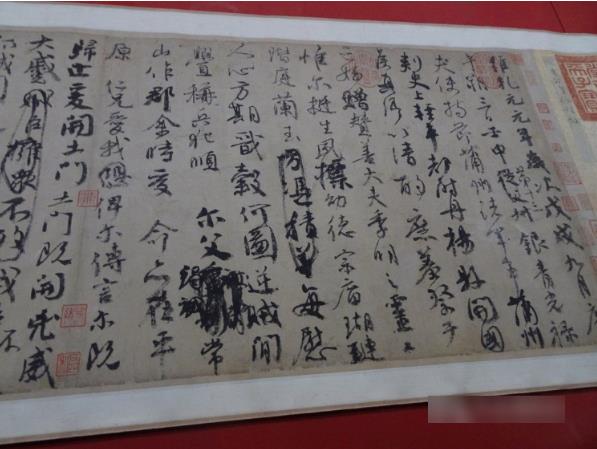 維乾元元年歲次戊戌九月庚
午朔三日壬申第十三叔銀青光祿
夫使持節蒲州諸軍事蒲州
刺史上輕車都尉丹楊縣開國
侯真卿以清酌庶羞祭于
亡姪贈贊善大夫季明之靈曰
惟爾挺生夙標幼德宗廟瑚璉
階庭蘭玉方憑積善每慰
人心方期戩穀何圖逆賊閒
釁稱兵犯順 爾父竭誠常
山作郡余時受命亦在平
原仁兄愛我恐俾爾傳言爾既
歸止爰開土門土門既開凶威
大蹙賊臣擁眾不救